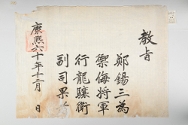 教旨
鄭錫三為
禦侮將軍
行龍驤衛
副司果
康熙六十年十二月 日